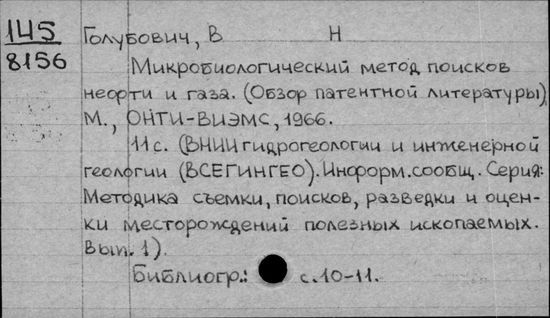 145 Голубович, В Н
8156
Микробиологический метод поисков
нефти и газа. (Обзор патентной литературы)
М., ОНТИ-ВИЭМС, 1966.
11с. (ВНИИ гидрогеологии и инженерной
геологии (ВСЕГИНГЕО). Информ. сообщ. Серия:
Методика съемки, поисков, разведки и оцен-
ки месторождений полезных ископаемых.
Вып. 1).
Библиогр.: с. 10-11.